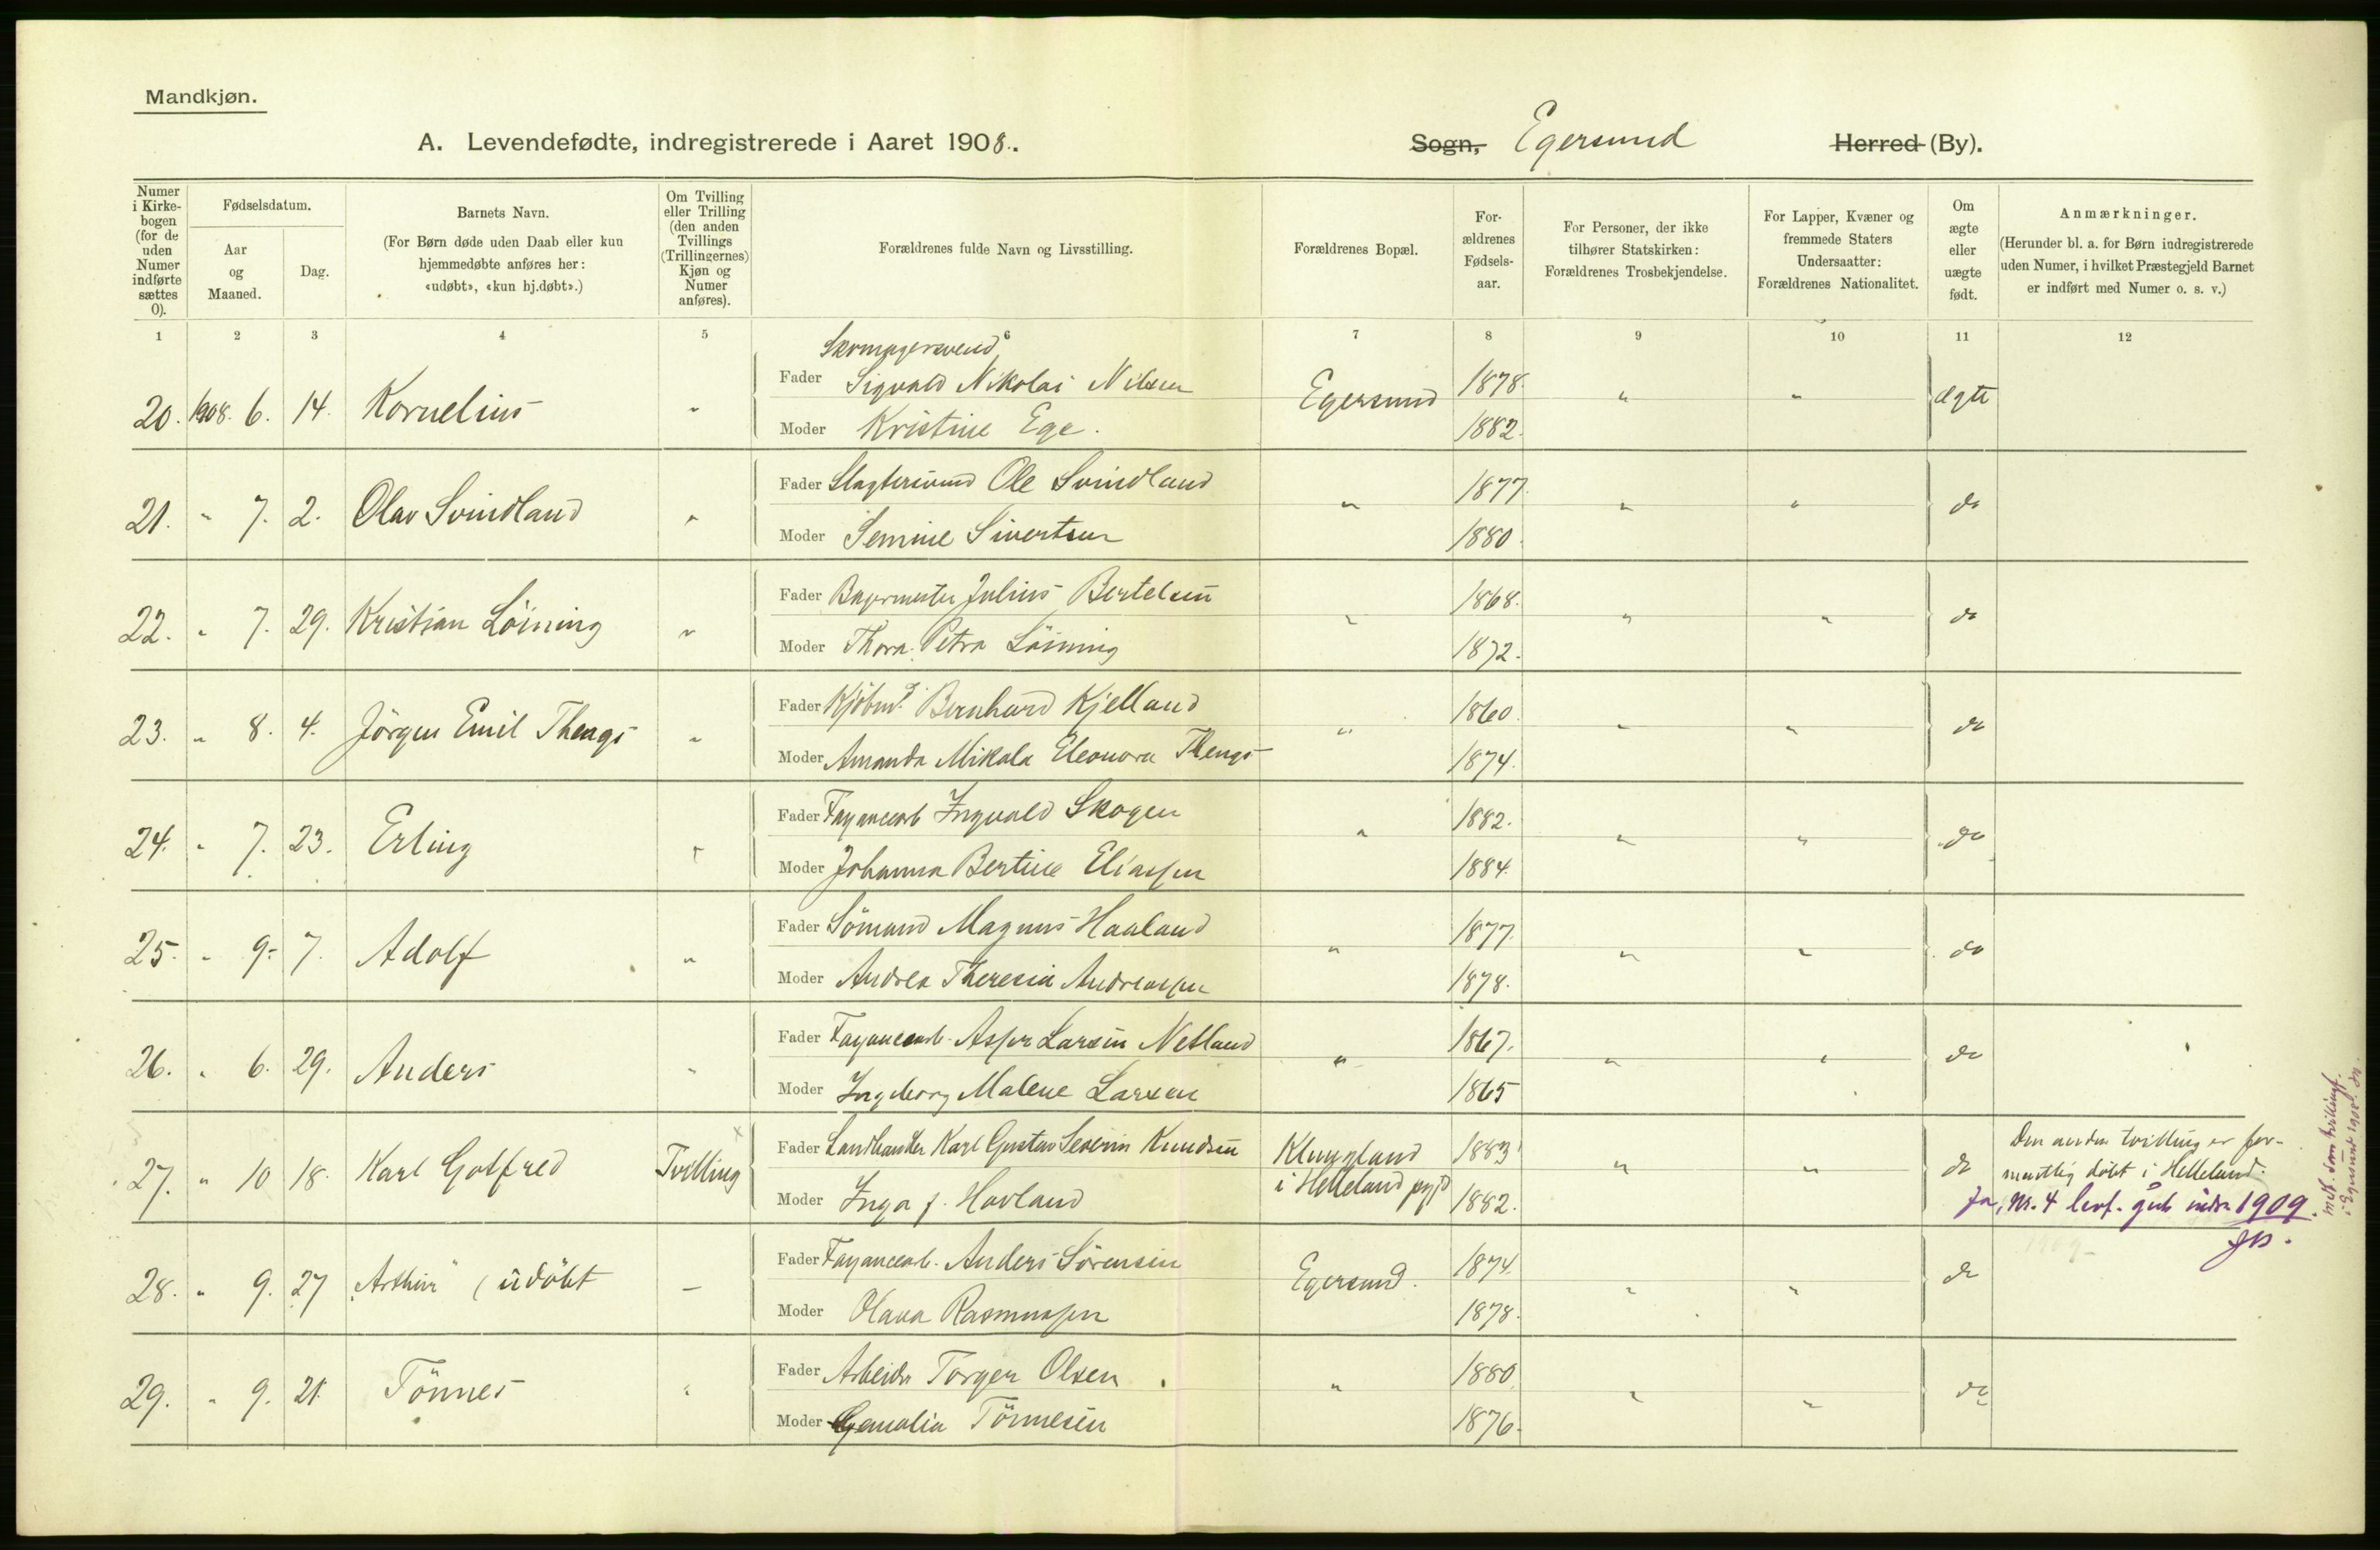 Mandkjøn.
A. Levendefødte, indregistrerede i Aaret 1908.
Sogn, Egersund Herred (By).
Numer i Kirkebogen (for de uden Numer indførte sættes 0).
Fødselsdatum.
Aar og Maaned.
Dag.
Barnets Navn.
(For Børn døde uden Daab eller kun hjemmedøbte anføres her: «udøbt», «kun hj.døbt».)
Om Tvilling eller Trilling (den anden Tvillings (Trillingernes) Kjøn og Numer anføres).
Forældrenes fulde Navn og Livsstilling.
Forældrenes Bopæl.
Forældrenes Fødselsaar.
For Personer, der ikke tilhører Statskirken: Forældrenes Trosbekjendelse.
For Lapper, Kvæner og fremmede Staters Undersaatter: Forældrenes Nationalitet.
Om ægte eller uægte født.
Anmærkninger.
(Herunder bl. a. for Børn indregistrerede uden Numer, i hvilket Præstegjeld Barnet er indført med Numer o. s. v.)
1 2 3 4 5 6 7 8 9 10 11 12
Skomagersvend
20. 1908. 6. 14. Kornelius " Fader Sigvald Nikolai Nilsen Egersund 1878. " " ægte
Moder Kristine Ege. 1882.
21. " 7. 2. Olav Svindland " Fader Slagtersvend Ole Svindland " 1877. " " do
Moder Semine Sivertsen 1880.
22. " 7. 29. Kristian Löining " Fader Bagermester Julius Bertelsen " 1868. " " do
Moder Thora Petra Löining 1872.
23. " 8. 4. Jörgen Emil Thengs " Fader Kjöbmd. Bernhard Kjelland " 1860. " " do
Moder Amanda Mikala Eleonora Thengs 1874.
24. " 7. 23. Erling " Fader Fayancearb Ingvald Skogen " 1882. " " do
Moder Johanna Bertine Eliassen 1884.
25. " 9. 7. Adolf " Fader Sömand Magnus Haaland " 1877. " " do
Moder Andrea Theresia Andreassen 1878.
26. " 6. 29. Anders " Fader Fayancearb. Asser Larsen Netland " 1867. " " do
Moder Ingeborg Malene Larsen 1865
27. " 10 18. Karl Gotfred Tvilling x Fader Landhandler Karl Gustav Severin Knudsen Klungland 1883 " " do Den anden tvilling er for-
mentlig döbt i Helleland.
Moder Inga f. Hovland i Helleland pgjd 1882.
Ja, Nr. 4 levf. gut indr. 1909.
28. " 9. 27 "Arthur" (udöbt — Fader Fayancearb. Anders Sörensen Egersund. 1874. " " do
Moder Olava Rasmussen 1878.
29. " 9. 21. Tönnes " Fader Arbeider Torger Olsen " 1880. " " do
Moder Gemalia Tönnesen 1876.
i Egersund 1908.